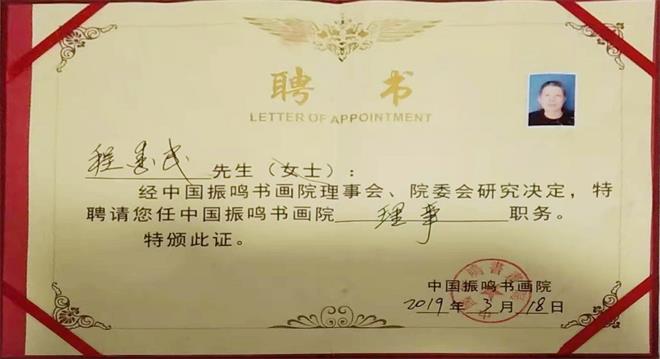 聘书
LETTER OF APPOINTMENT
程惠民 先生（女士）：
经中国振鸣书画院理事会、院委会研究决定，特
聘请您任中国振鸣书画院 理事 职务。
特颁此证。
中国振鸣书画院
2019年3月18日